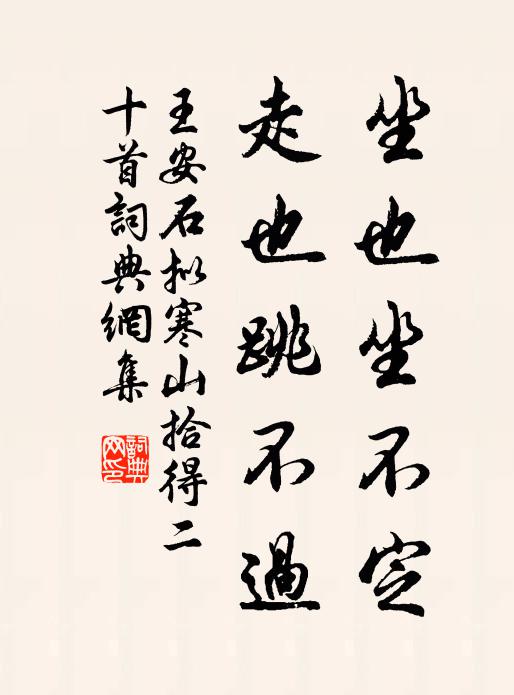 坐也坐不定
走也跳不過
王安石拟寒山拾得二
十首詞典網集
詞典网印